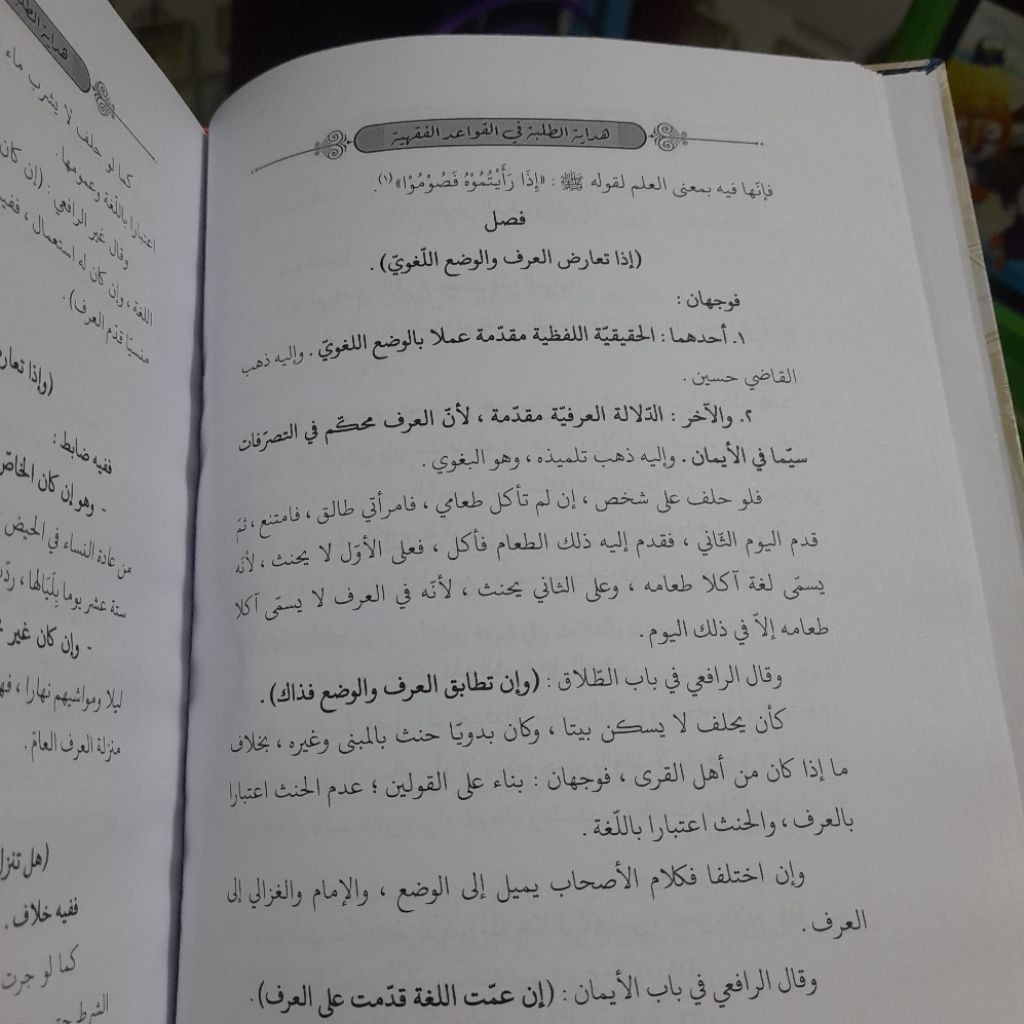 هداية الطلبة في القواعد الفقهية
فإنّها فيه بمعنى العلم لقوله ﷺ : «إِذَا رَأَيْتُمُوْهُ فَصُوْمُوْا»(١).
فصل
(إذا تعارض العرف والوضع اللّغويّ) .
فوجهان :
١. أحدهما : الحقيقيّة اللفظية مقدّمة عملا بالوضع اللغويّ . وإليه ذهب
القاضي حسين .
٢. والآخر : الدّلالة العرفيّة مقدّمة ، لأنّ العرف محكّم في التصرّفات
سيّما في الأيمان . وإليه ذهب تلميذه ، وهو البغوي .
فلو حلف على شخص ، إن لم تأكل طعامي ، فامرأتي طالق ، فامتنع ، ثمّ
قدم اليوم الثّاني ، فقدم إليه ذلك الطعام فأكل ، فعلى الأوّل لا يحنث ، لأنّه
يسمّى لغة آكلا طعامه ، وعلى الثاني يحنث ، لأنّه في العرف لا يسمّى آكلا
طعامه إلاّ في ذلك اليوم .
وقال الرافعي في باب الطّلاق : (وإن تطابق العرف والوضع فذاك) .
كأن يحلف لا يسكن بيتا ، وكان بدويّا حنث بالمبنى وغيره ، بخلاف
ما إذا كان من أهل القرى ، فوجهان : بناء على القولين ؛ عدم الحنث اعتبارا
بالعرف ، والحنث اعتبارا باللّغة .
وإن اختلفا فكلام الأصحاب يميل إلى الوضع ، والإمام والغزالي إلى
العرف .
وقال الرافعي في باب الأيمان : (إن عمّت اللغة قدّمت على العرف) .
هداية
كما لو حلف لا يشرب ماء
اعتبارا باللّغة وعمومها .
وقال غير الرافعي : (إن كان
اللغة ، وإن كان له استعمال ، ففيه
منسيّا قدّم العرف) .
(وإذا
ففيه ضابط :
- وهو إن كان الخاصّ
من عادة النساء في الحيض
ستة عشر يوما بِلَيَالِها ،
- وإن كان غير
ليلا ومواشيهم نهارا ،
منزلة العرف العامّ .
(هل
ففيه خلاف .
كما لو جرت
الشرط